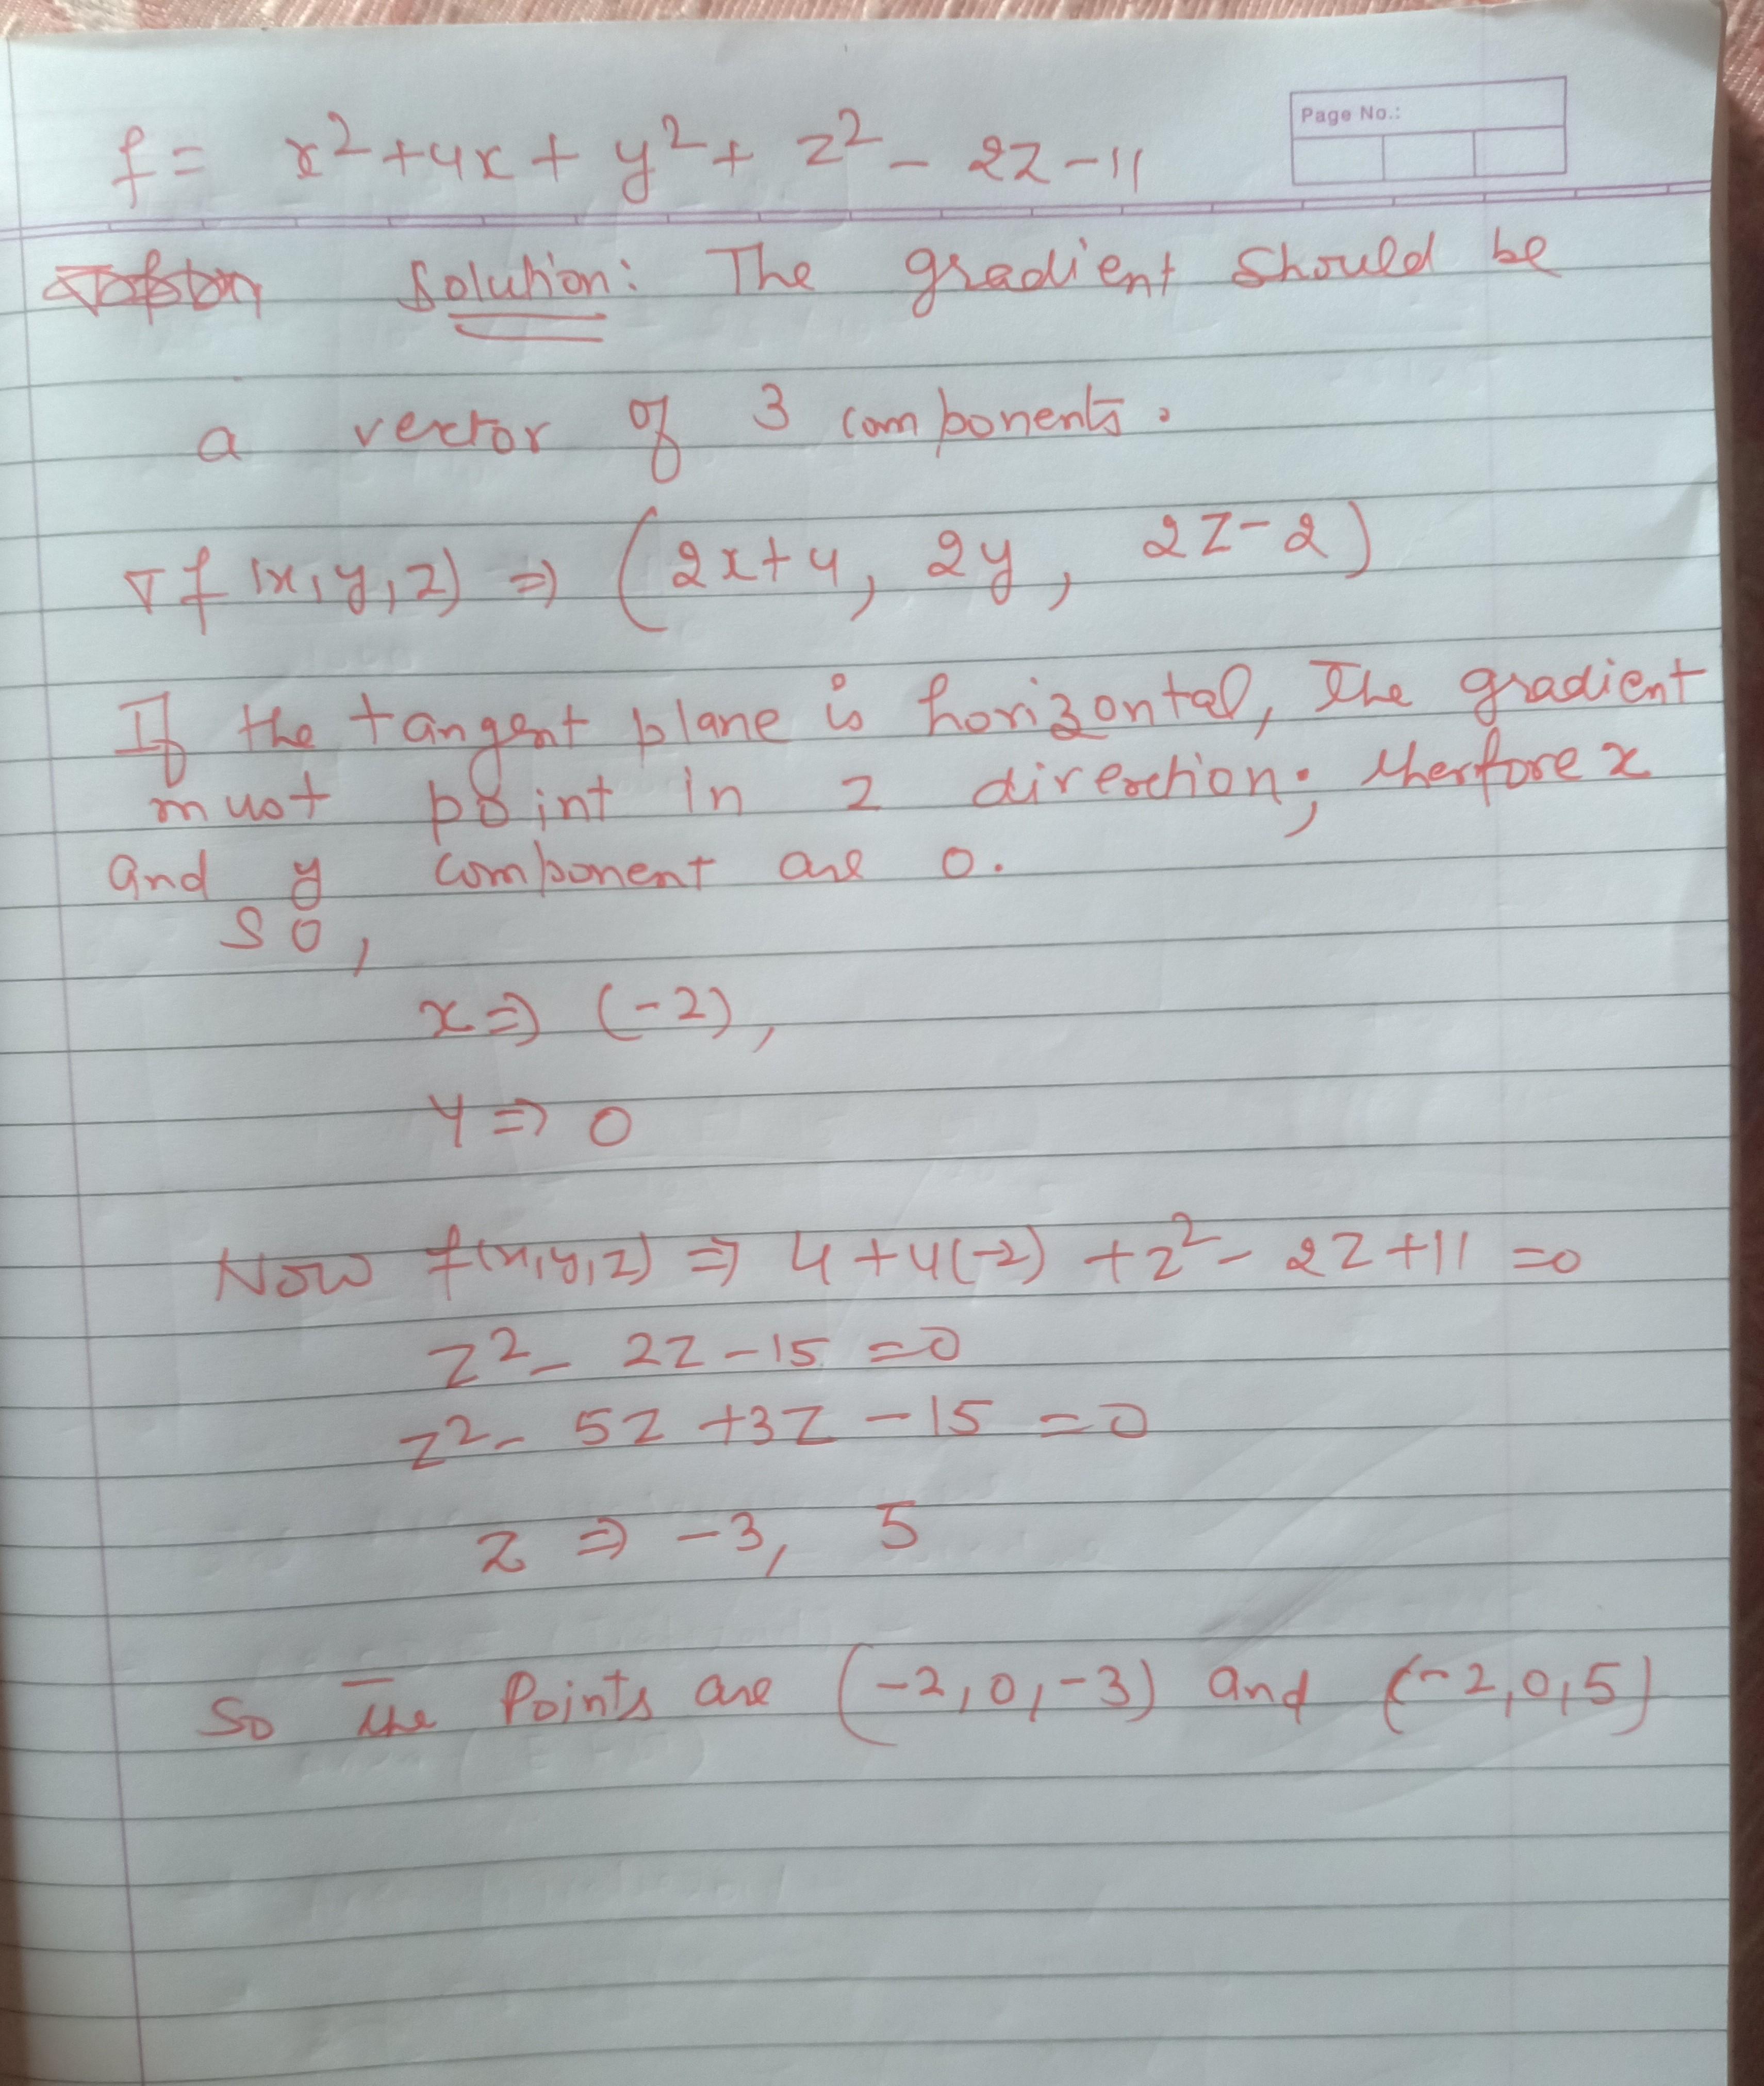 f = x² + 4x + y² + z² - 2z - 11
Page No.:
Solution: The gradient should be
a vector of 3 components.
∇f(x,y,z) ⇒ (2x+4, 2y, 2z-2)
If the tangent plane is horizontal, the gradient
must point in z direction; therfore x
and y component are 0.
so,
x ⇒ (-2),
y ⇒ 0
Now f(x,y,z) ⇒ 4+4(-2) +z² - 2z+11 =0
z² - 2z - 15 = 0
z² - 5z +3z - 15 = 0
z ⇒ -3, 5
So the Points are (-2,0,-3) and (-2,0,5)